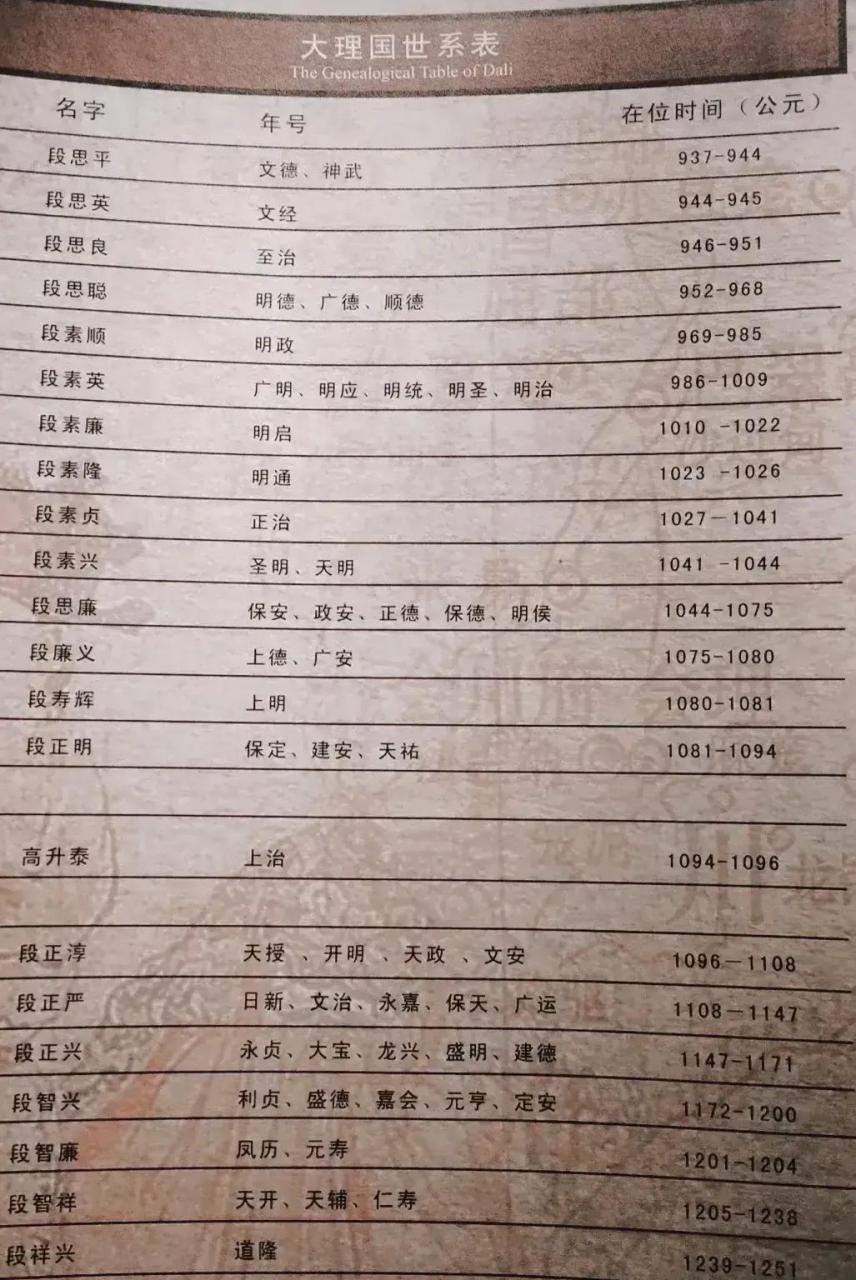 大理国世系表
The Genealogical Table of Dali
名字 年号 在位时间（公元）
段思平 文德、神武 937-944
段思英 文经 944-945
段思良 至治 946-951
段思聪 明德、广德、顺德 952-968
段素顺 明政 969-985
段素英 广明、明应、明统、明圣、明治 986-1009
段素廉 明启 1010 -1022
段素隆 明通 1023 -1026
段素贞 正治 1027－1041
段素兴 圣明、天明 1041 -1044
段思廉 保安、政安、正德、保德、明侯 1044-1075
段廉义 上德、广安 1075-1080
段寿辉 上明 1080-1081
段正明 保定、建安、天祐 1081-1094
高升泰 上治 1094-1096
段正淳 天授 、开明 、天政 、文安 1096－1108
段正严 日新、文治、永嘉、保天、广运 1108－1147
段正兴 永贞、大宝、龙兴、盛明、建德 1147-1171
段智兴 利贞、盛德、嘉会、元亨、定安 1172-1200
段智廉 凤历、元寿 1201-1204
段智祥 天开、天辅、仁寿 1205-1238
段祥兴 道隆 1239-1251